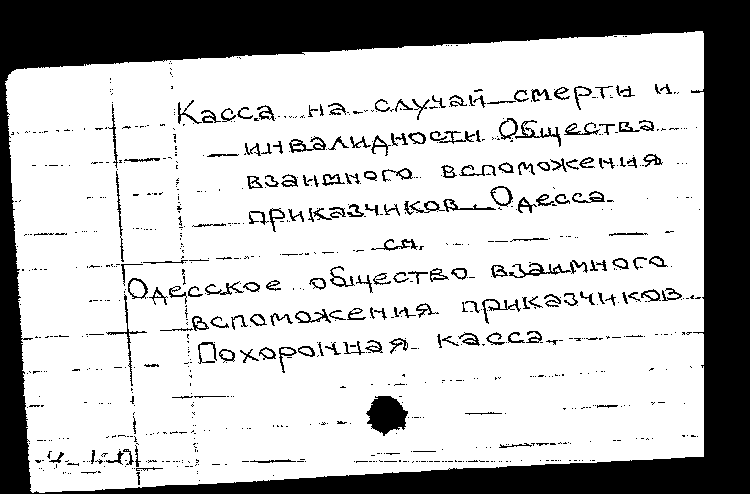 Касса на случай смерти и
инвалидности Общества
взаимного вспоможения
приказчиков. Одесса.
см.
Одесское общество взаимного
вспоможения приказчиков.
Похоронная касса.